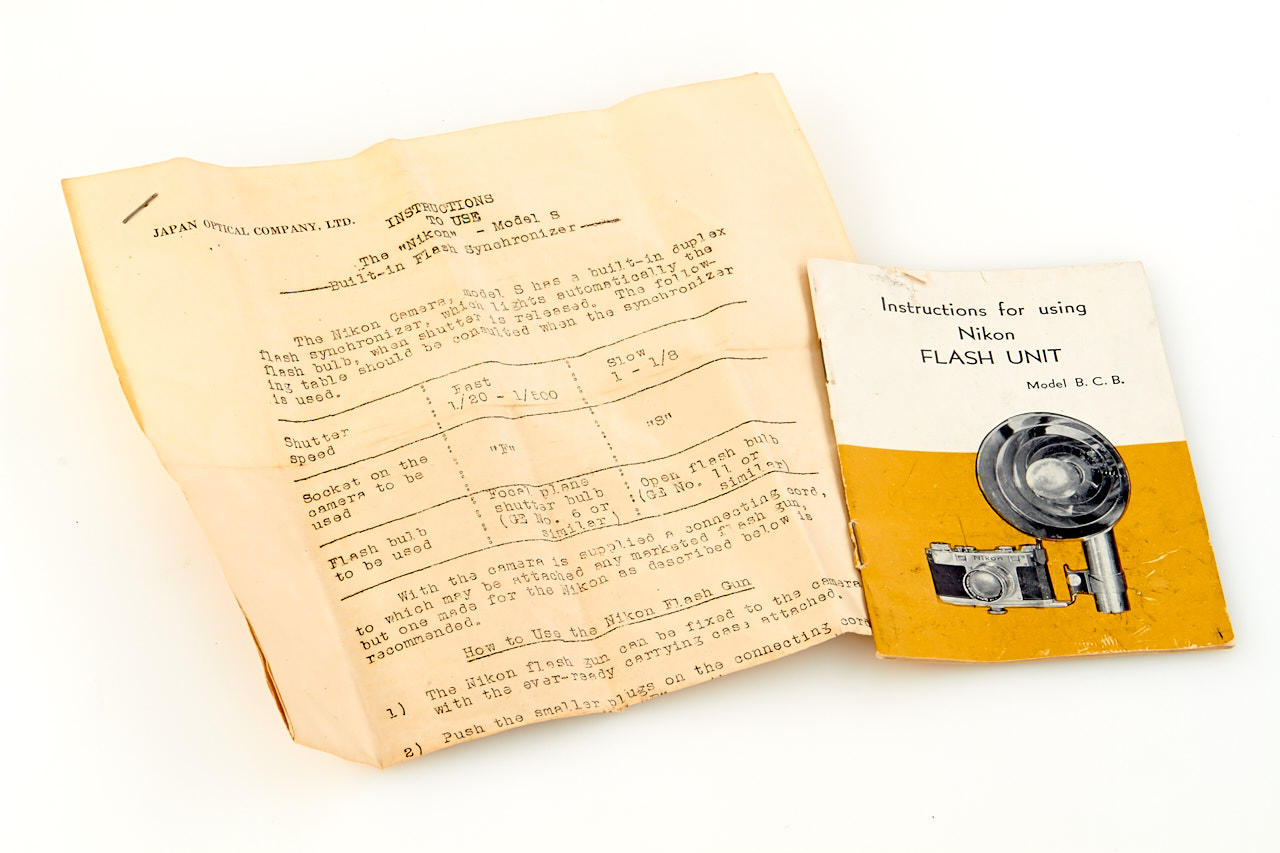 JAPAN OPTICAL COMPANY, LTD.
INSTRUCTIONS
TO USE
The "Nikon" - Model S
Built-in Flash Synchronizer
The Nikon Camera, model S has a built-in duplex
flash synchronizer, which lights automatically the
flash bulb, when shutter is released. The follow-
ing table should be consulted when the synchronizer
is used.
Shutter speed
Fast
1/20 - 1/500
Slow
1 - 1/8
Socket on the
camera to be
used
"F"
"S"
Flash bulb
to be used
Focal plane
shutter bulb
(GE No. 6 or
similar)
Open flash bulb
(GE No. 11 or
similar)
With the camera is supplied a connecting cord,
to which may be attached any marketed flash gun,
but one made for the Nikon as described below is
recommended.
How to Use the Nikon Flash Gun
1) The Nikon flash gun can be fixed to the camera
with the ever-ready carrying case attached.
2) Push the smaller plugs on the connecting cord
Instructions for using
Nikon
FLASH UNIT
Model B. C. B.
Nikon